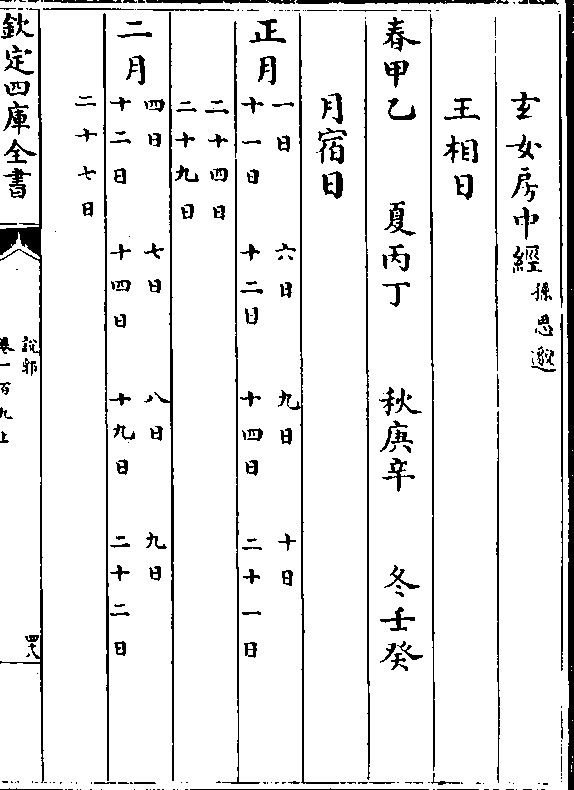 玄女房中經 孫思邈
王相日
春甲乙 夏丙丁 秋庚辛 冬壬癸
月宿日
正月
一日 六日 九日 十日
十一日 十二日 十四日 二十一日
二十四日
二十九日
二月
四日 七日 八日 九日
十二日 十四日 十九日 二十二日
二十七日
欽定四庫全書
說郛
卷一百九上
四十八